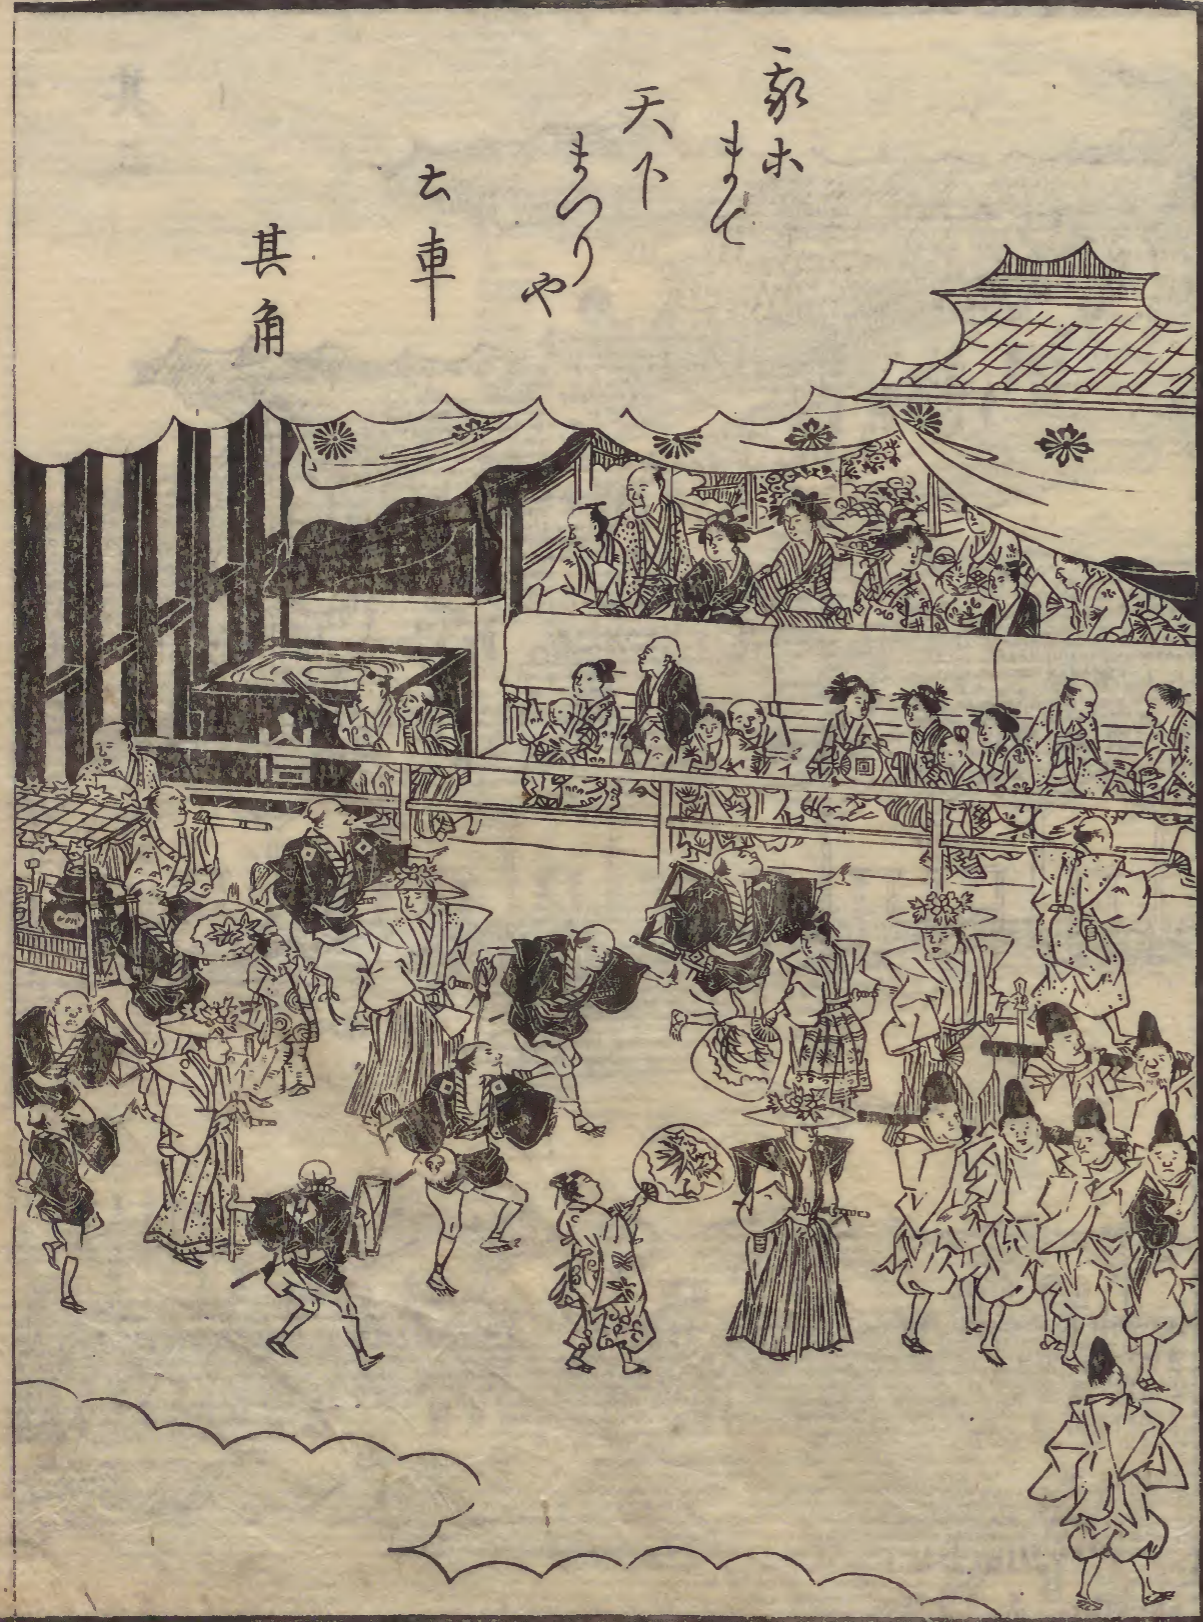 我等
まて
天下
まつり
や
土車
其角